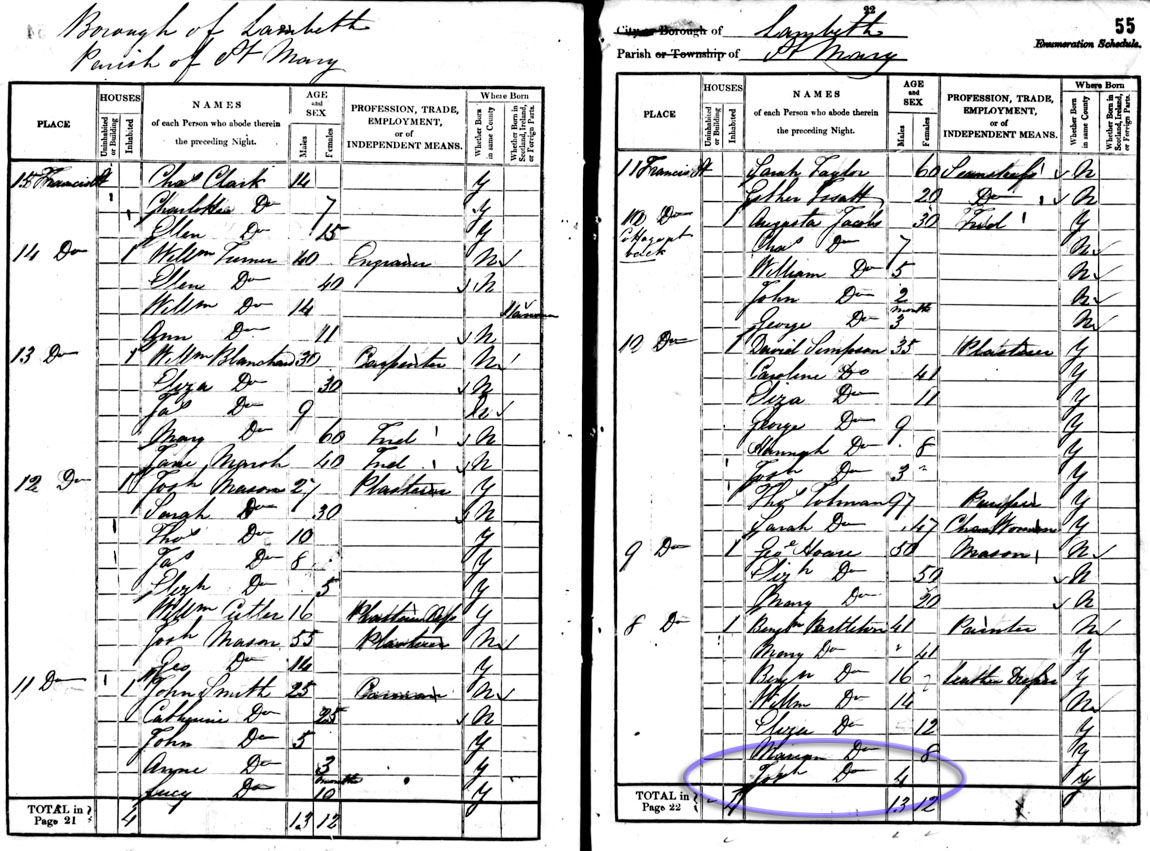 Borough of Lambeth
Parish of St Mary
PLACE
HOUSES
Uninhabited or Building
Inhabited
NAMES
of each Person who abode therein
the preceding Night.
AGE
and
SEX
Males
Females
PROFESSION, TRADE,
EMPLOYMENT,
or of
INDEPENDENT MEANS.
Where Born
Whether Born in same County
Whether Born in Scotland, Ireland, or Foreign Parts.
15 Francis St Chas Clark 14 y
Charlotte Do 7 y
Ellen Do 15 y
14 Do 1 Willm Turner 40 Engraver N
Ellen Do 40 N
Willm Do 14
Ann Do 11 N
13 Do 1 Willm Blanchard 30 Carpenter N
Eliza Do 30 N
Jas Do 9 N
Mary Do 60 Ind N
Jane Marsh 40 Ind N
12 Do 1 Josh Mason 27 Plasterer y
Sarah Do 30 N
Thos Do 10 y
Jas Do 8 y
Elizh Do 5 y
Willm Cutler 16 y
Josh Mason 55 Plasterer N
Geo Do 14 y
11 Do 1 John Smith 25 Carman N
Catherine Do 25 N
John Do 5 y
Anne Do 3 y
Lucy Do months 10 y
TOTAL in Page 21 4 13 12
22
City or Borough of Lambeth
Parish or Township of St Mary
55
Enumeration Schedule.
PLACE
HOUSES
Uninhabited or Building
Inhabited
NAMES
of each Person who abode therein
the preceding Night.
AGE
and
SEX
Males
Females
PROFESSION, TRADE,
EMPLOYMENT,
or of
INDEPENDENT MEANS.
Where Born
Whether Born in same County
Whether Born in Scotland, Ireland, or Foreign Parts.
11 Francis St Sarah Taylor 60 N
Esther 20 Do N
Do 1 Augusta Jacobs 30 Ind y
back Chas Do 7 N
William Do 5 N
John Do 2 N
George Do months 3 N
10 Do 1 David Simpson 35 Plasterer y
Caroline Do 41 y
Eliza Do 11 y
George Do 9 y
Hannah Do 8 y
Josh Do 3 y
Thos 97 y
Sarah Do 47 Char Woman y
9 Do 1 Geo Hoare 50 Mason N
Elizh Do 50 N
Mary Do 20 N
8 Do 1 Benjn Bartleton 41 Painter N
Mary Do 41 y
Benjn Do 16 Leather Dresser y
Willm Do 14 N
Eliza Do 12 y
Marian Do 8 y
Josh Do 4 y
TOTAL in Page 22 4 13 12